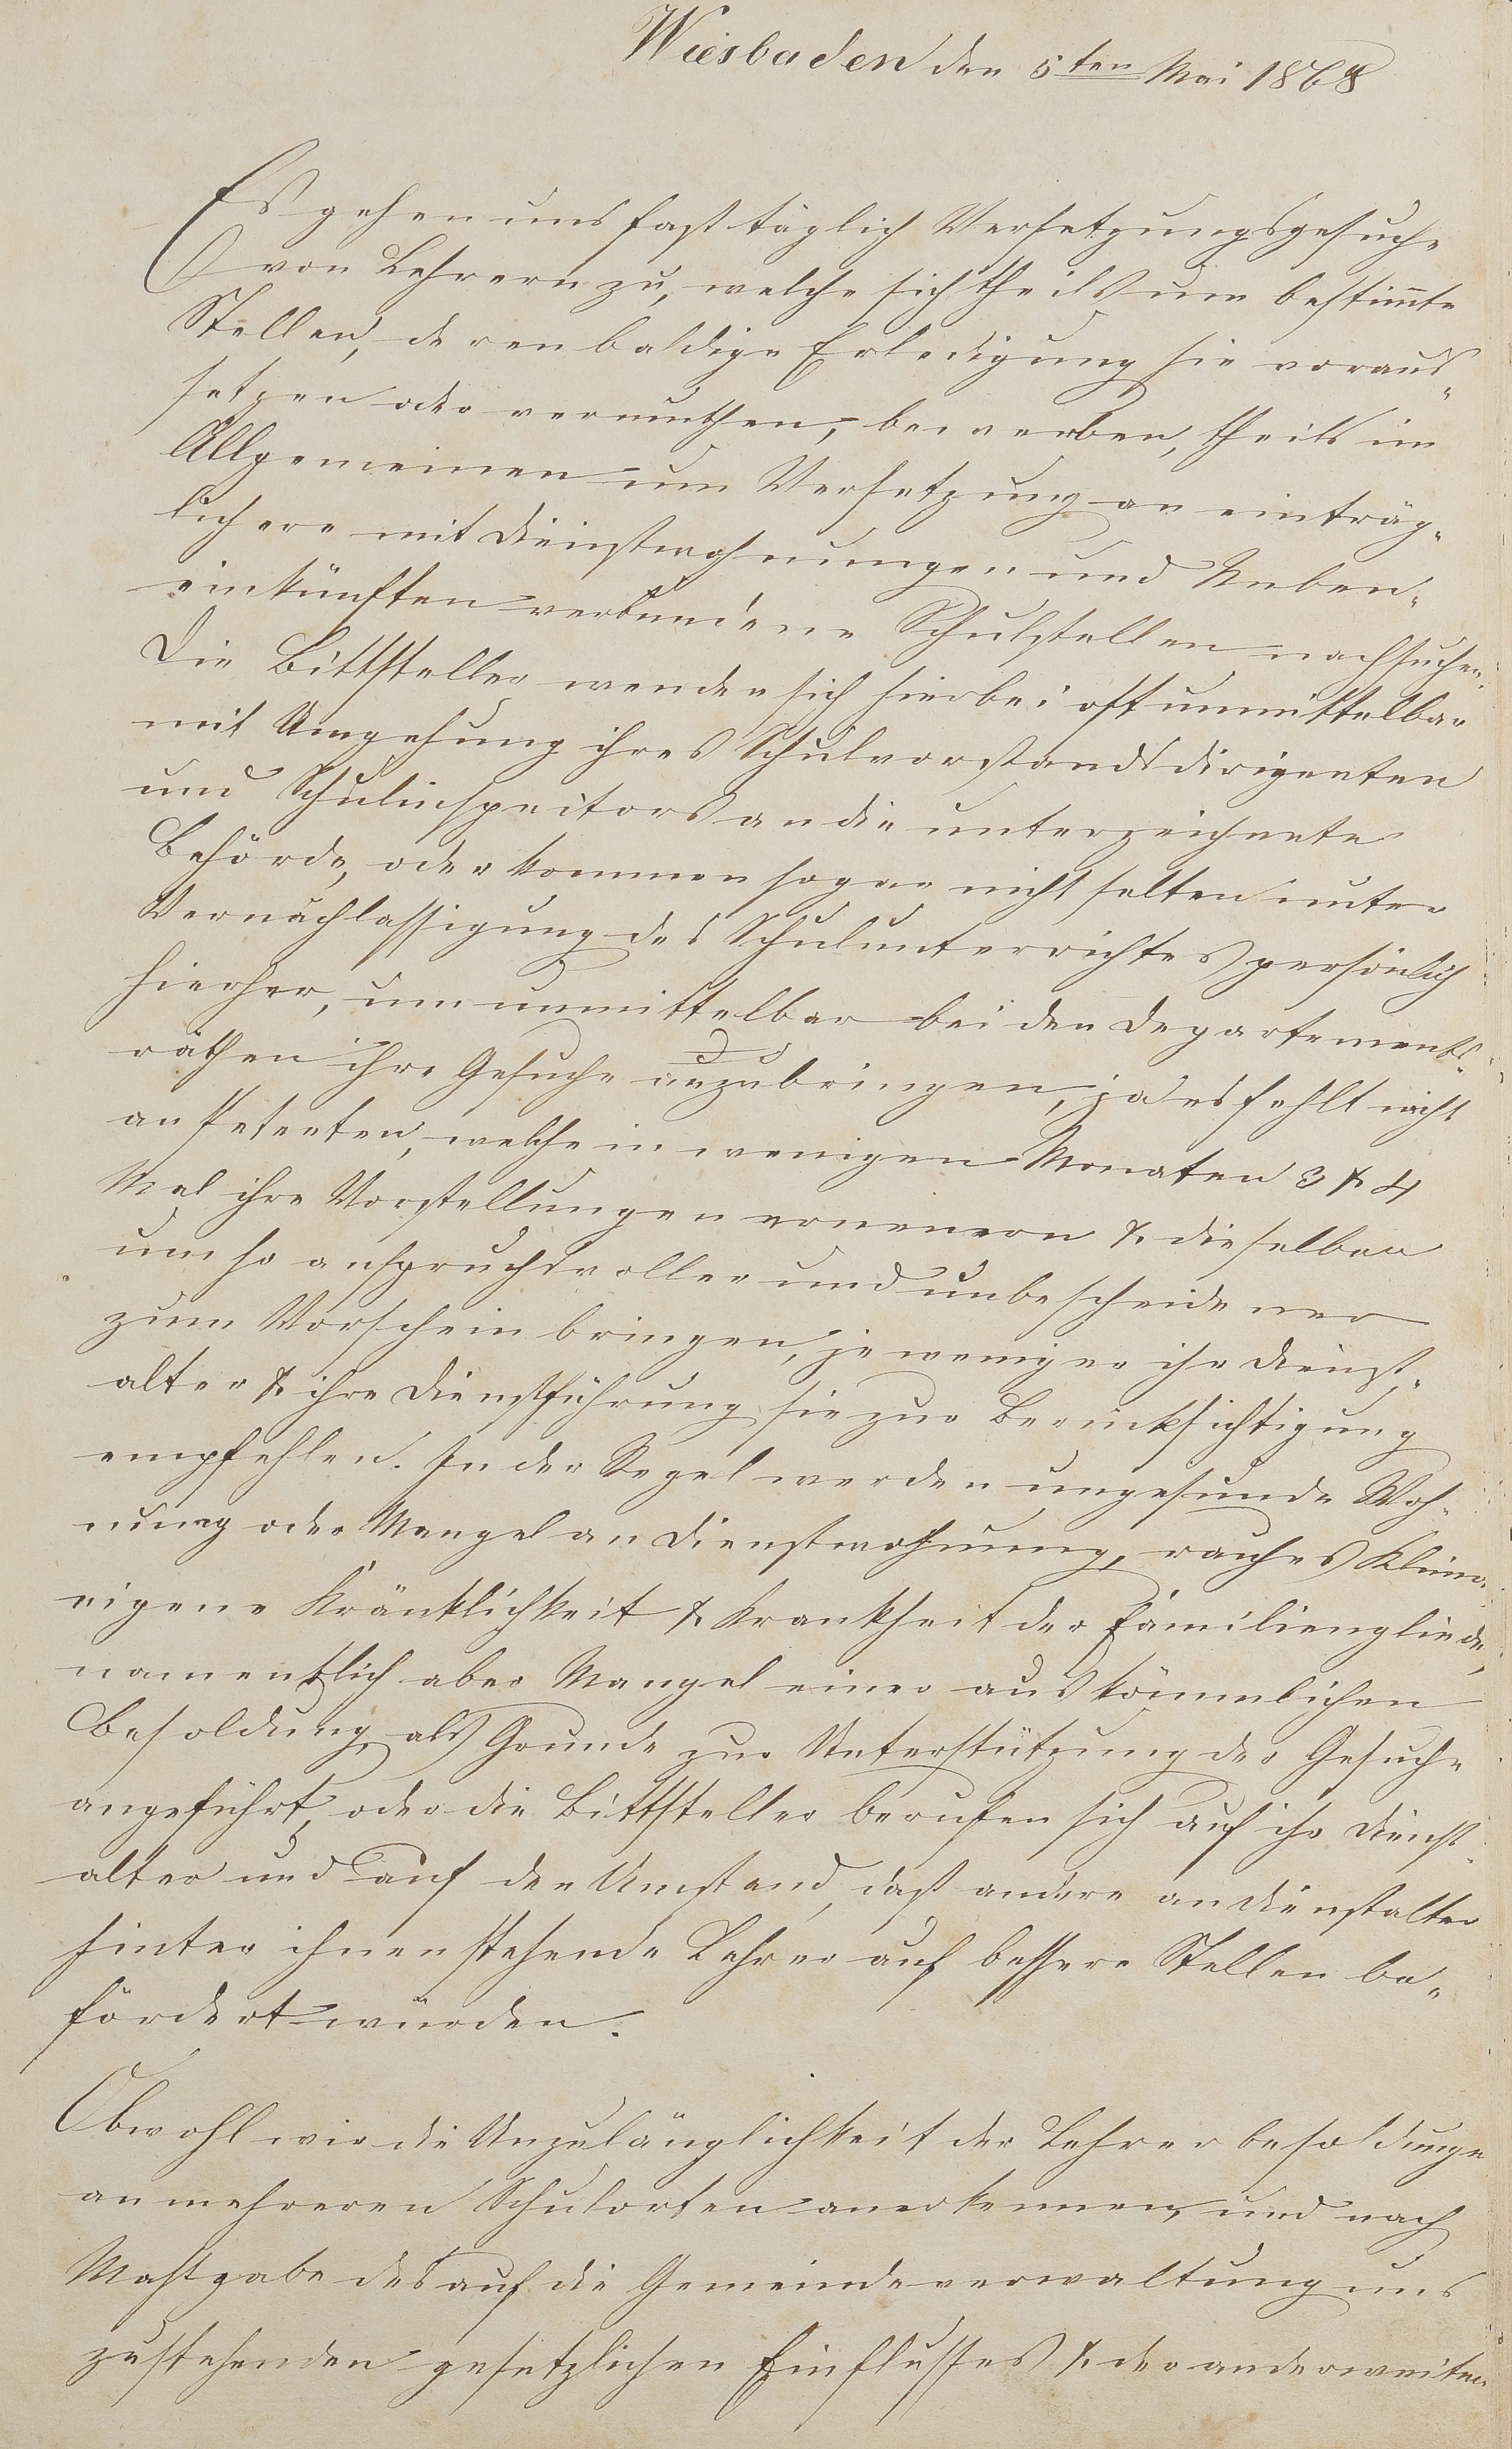 Wiesbaden den 5ten Mai 1868
Es gehen uns fast täglich Versetzungsgesuche
von Lehrern zu, welche sich theils um bestimmte
Stellen, deren baldige Erledigung sie voraus-
setzen oder vermuthen, bewerben, theils im
Allgemeinen um Versetzung an einträg-
lichere mit Dienstwohnungen und Neben-
einkünften verbundene Schulstellen nachsuchen.
Die Bittsteller wenden sich hierbei oft unmittelbar
mit Umgehung ihres Schulvorstandsdirigenten
und Schulinspectors an die unterzeichnete
Behörde, oder kommen sogar nicht selten unter
Vernachlassigung des Schulunterrichtes persönlich
hierher, um unmittelbar bei den Departements-
räthen ihre Gesuche anzubringen, ja es fehlt nicht
an Petenten, welche in wenigen Monaten 3 & 4
Mal ihre Vorstellungen erneuern & dieselben
um so anspruchsvoller und unbescheidener
zum Vorschein bringen, je weniger ihr Dienst-
alter & ihre Dienstführung sie zur Berücksichtigung
empfehlen. In der Regel werden ungesunde Woh-
nung oder Mangel an Dienstwohnung, rauhes Klima
eigene Kränklichkeit & Krankheit der Familienglieder,
namentlich aber Mangel einer auskömmlichen
Besoldung als Grunde zur Unterstützung der Gesuche
angeführt, oder die Bittsteller berufen sich auf ihr Dienst-
alter und auf den Umstand, daß andere an Dienstalter
hinter ihnen stehende Lehrer auf bessere Stellen be-
fördert würden.
Obwohl wir die Unzulänglichkeit der Lehrerbesoldungen
an mehreren Schulorten anerkennen, und nach
Maßgabe des auf die Gemeindeverwaltung uns
zustehenden gesetzlichen Einflusses & der anderweiten